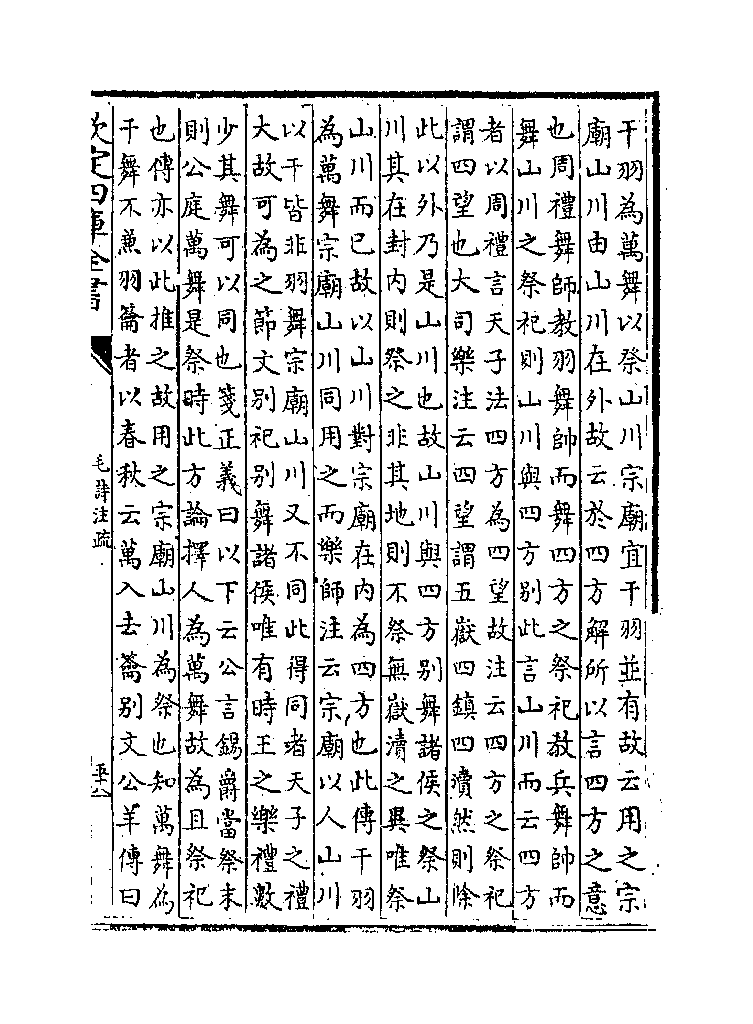 干羽為萬舞以祭山川宗廟宜干羽並有故云用之宗
廟山川由山川在外故云於四方解所以言四方之意
也周禮舞師教羽舞帥而舞四方之祭祀教兵舞帥而
舞山川之祭祀則山川與四方別此言山川而云四方
者以周禮言天子法四方為四望故注云四方之祭祀
謂四望也大司樂注云四望謂五嶽四鎮四瀆然則除
此以外乃是山川也故山川與四方別舞諸侯之祭山
川其在封内則祭之非其地則不祭無嶽瀆之異唯祭
山川而已故以山川對宗廟在内為四方也此傳干羽
為萬舞宗廟山川同用之而樂師注云宗廟以人山川
以干皆非羽舞宗廟山川又不同此得同者天子之禮
大故可為之節文別祀別舞諸侯唯有時王之樂禮數
少其舞可以同也箋正義曰以下云公言錫爵當祭末
則公庭萬舞是祭時此方論擇人為萬舞故為且祭祀
也傳亦以此推之故用之宗廟山川為祭也知萬舞為
干舞不兼羽籥者以春秋云萬入去籥別文公羊傳曰
欽定四庫全書
毛詩注疏